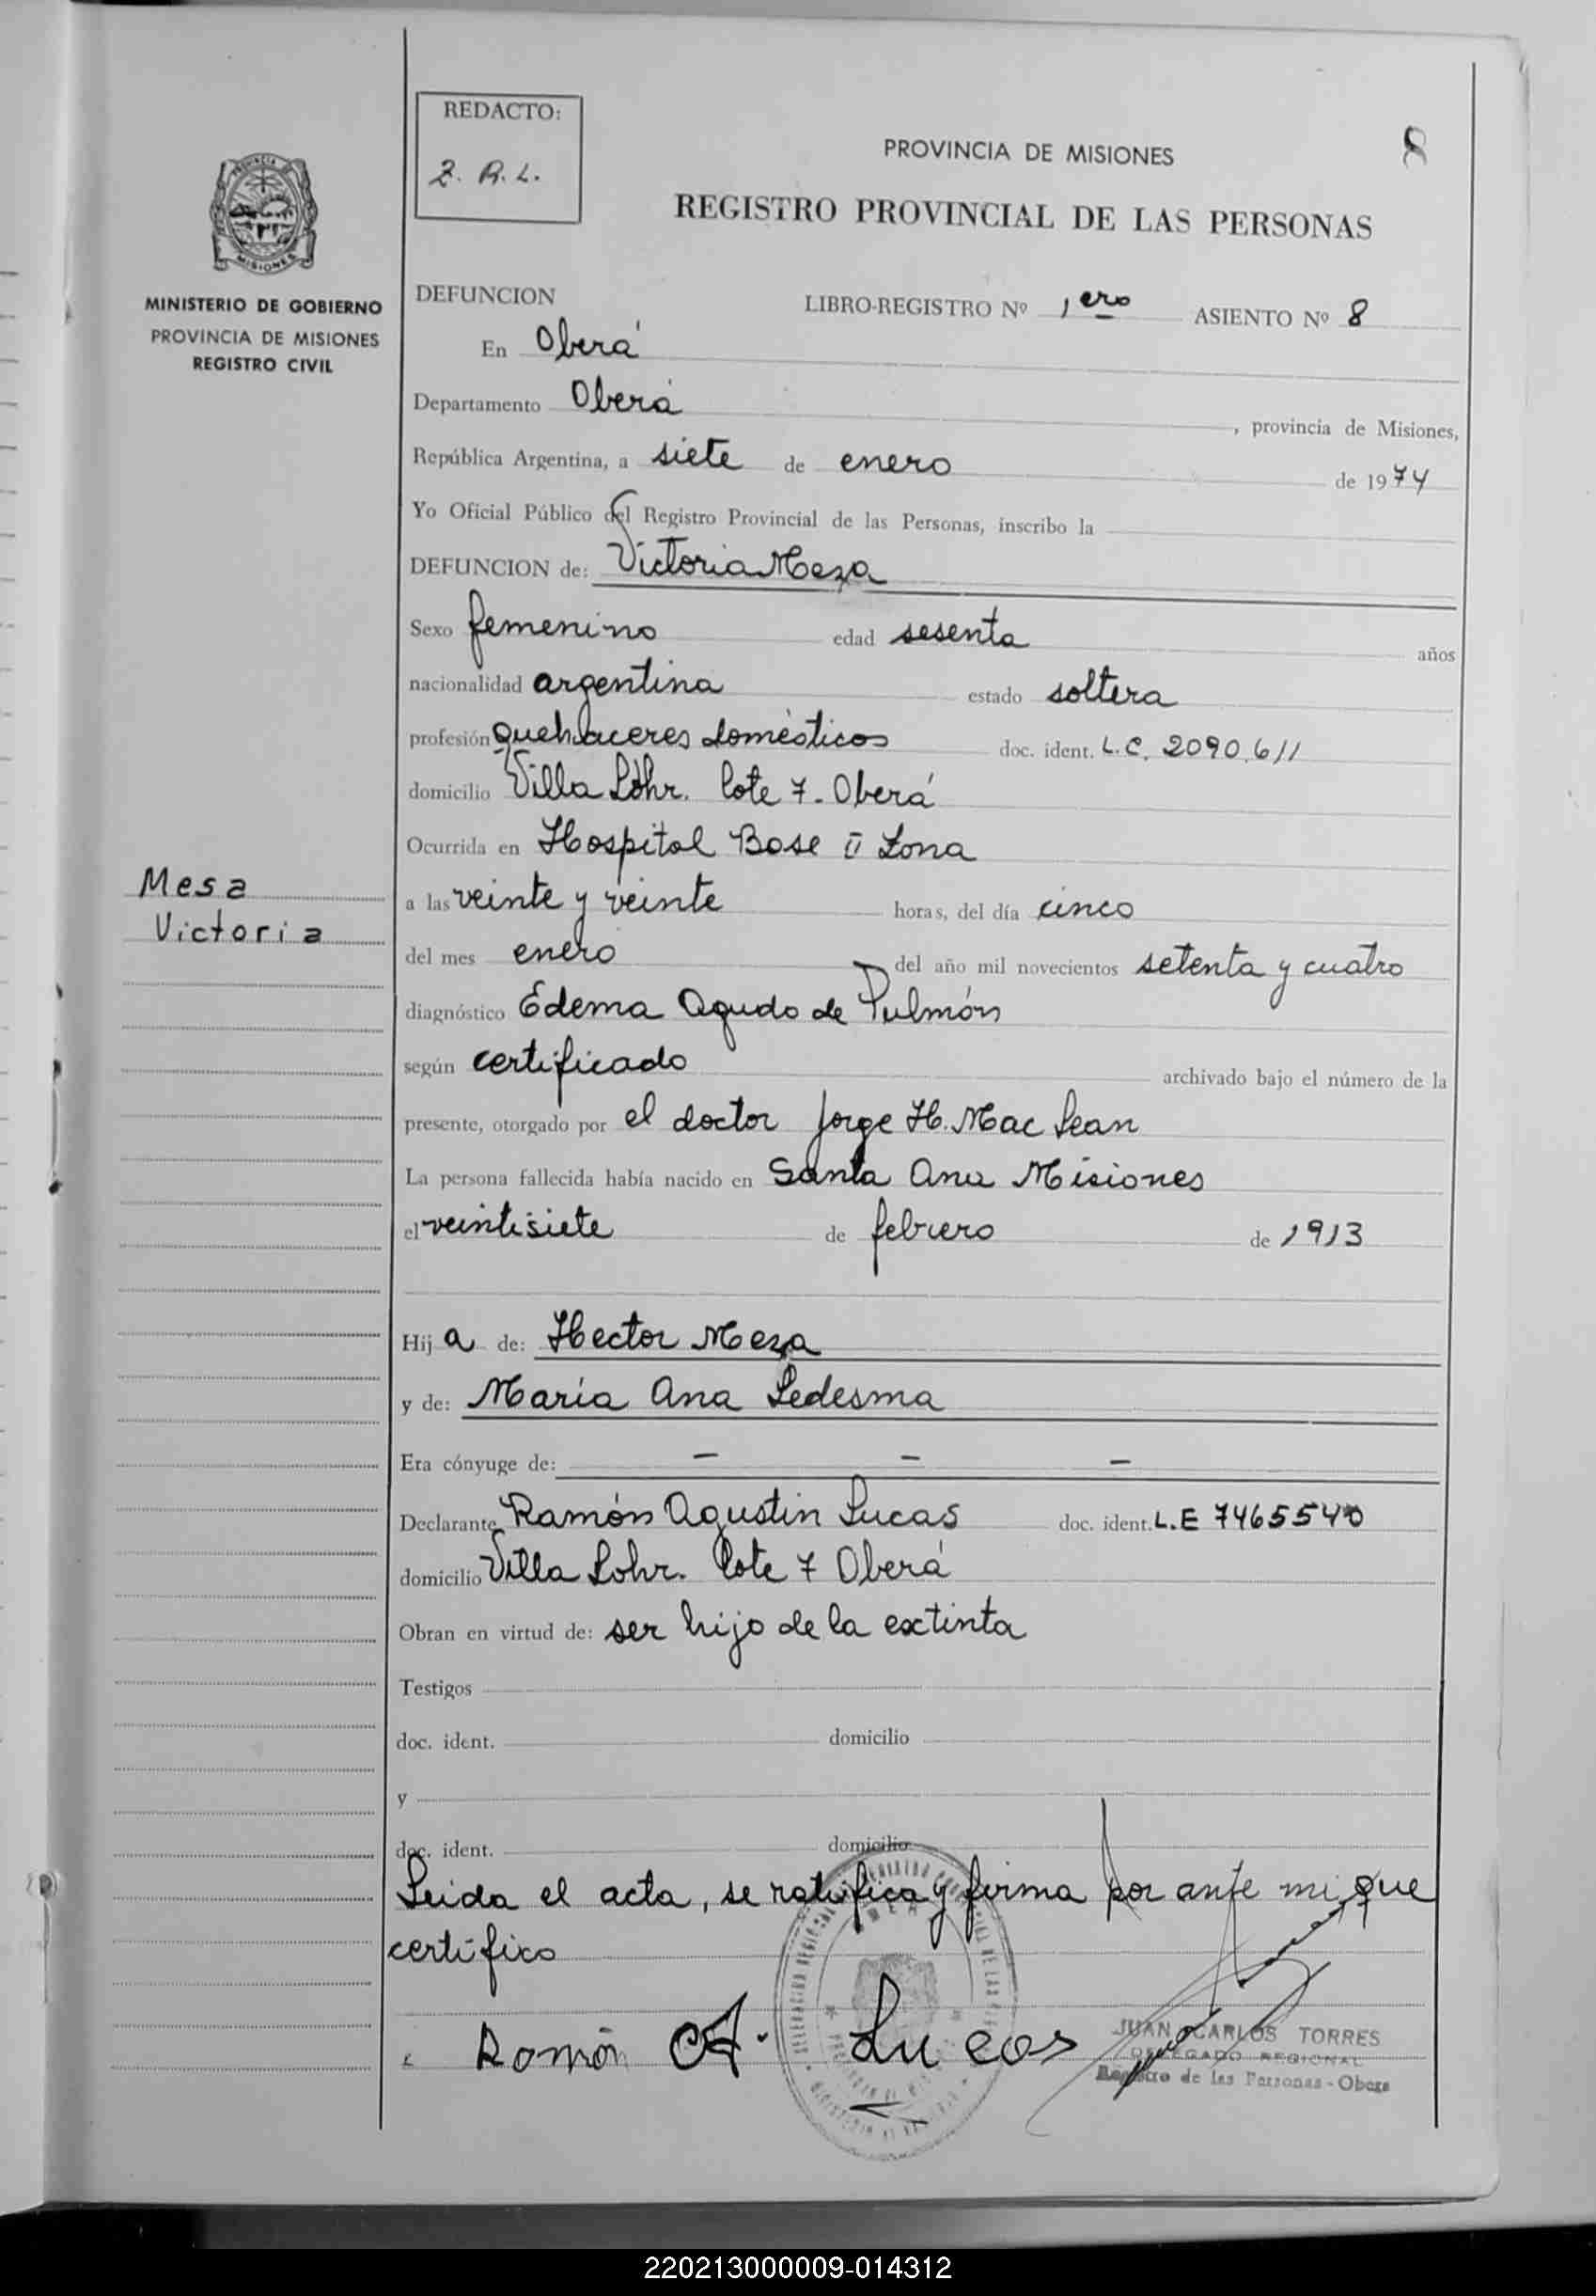 REDACTO:
Z. R. L.
PROVINCIA DE MISIONES
8
REGISTRO PROVINCIAL DE LAS PERSONAS
MISIONES
MINISTERIO DE GOBIERNO
PROVINCIA DE MISIONES
REGISTRO CIVIL
DEFUNCION LIBRO-REGISTRO Nº 1ero ASIENTO Nº 8
En Oberá
Departamento Oberá, provincia de Misiones,
República Argentina, a siete de enero de 1974
Yo Oficial Público del Registro Provincial de las Personas, inscribo la
DEFUNCION de: Victoria Meza
Sexo femenino edad sesenta años
nacionalidad argentina estado soltera
profesión quehaceres domésticos doc. ident. L.C. 2090.611
domicilio Villa Löhr. lote 7. Oberá
Ocurrida en Hospital Base II Zona
Mesa
Victoria
a las veinte y veinte horas, del día cinco
del mes enero del año mil novecientos setenta y cuatro
diagnóstico Edema Agudo de Pulmón
según certificado archivado bajo el número de la
presente, otorgado por el doctor Jorge H. Mac Lean
La persona fallecida había nacido en Santa Ana Misiones
el veintisiete de febrero de 1913
Hija de: Hector Meza
y de: María Ana Ledesma
Era cónyuge de: — — —
Declarante Ramón Agustin Lucas doc. ident. L.E 7465540
domicilio Villa Lohr. lote 7 Oberá
Obran en virtud de: ser hijo de la extinta
Testigos
doc. ident. domicilio
y
doc. ident. domicilio
Leida el acta, se ratifica y firma por ante mi que
certifico
Ramón A. Lucas
JUAN CARLOS TORRES
DELEGADO REGIONAL
Registro de las Personas - Obera
220213000009-014312